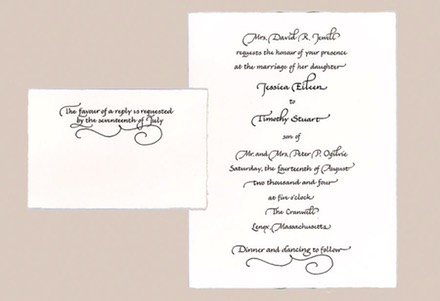 The favour of a reply is requested
by the seventeenth of July
Mrs. David R. Jewill
requests the honour of your presence
at the marriage of her daughter
Jessica Eileen
to
Timothy Stuart
son of
Mr. and Mrs. Peter P. Ogilvie
Saturday, the fourteenth of August
two thousand and four
at five o'clock
The Cranwell
Lenox, Massachusetts
Dinner and dancing to follow